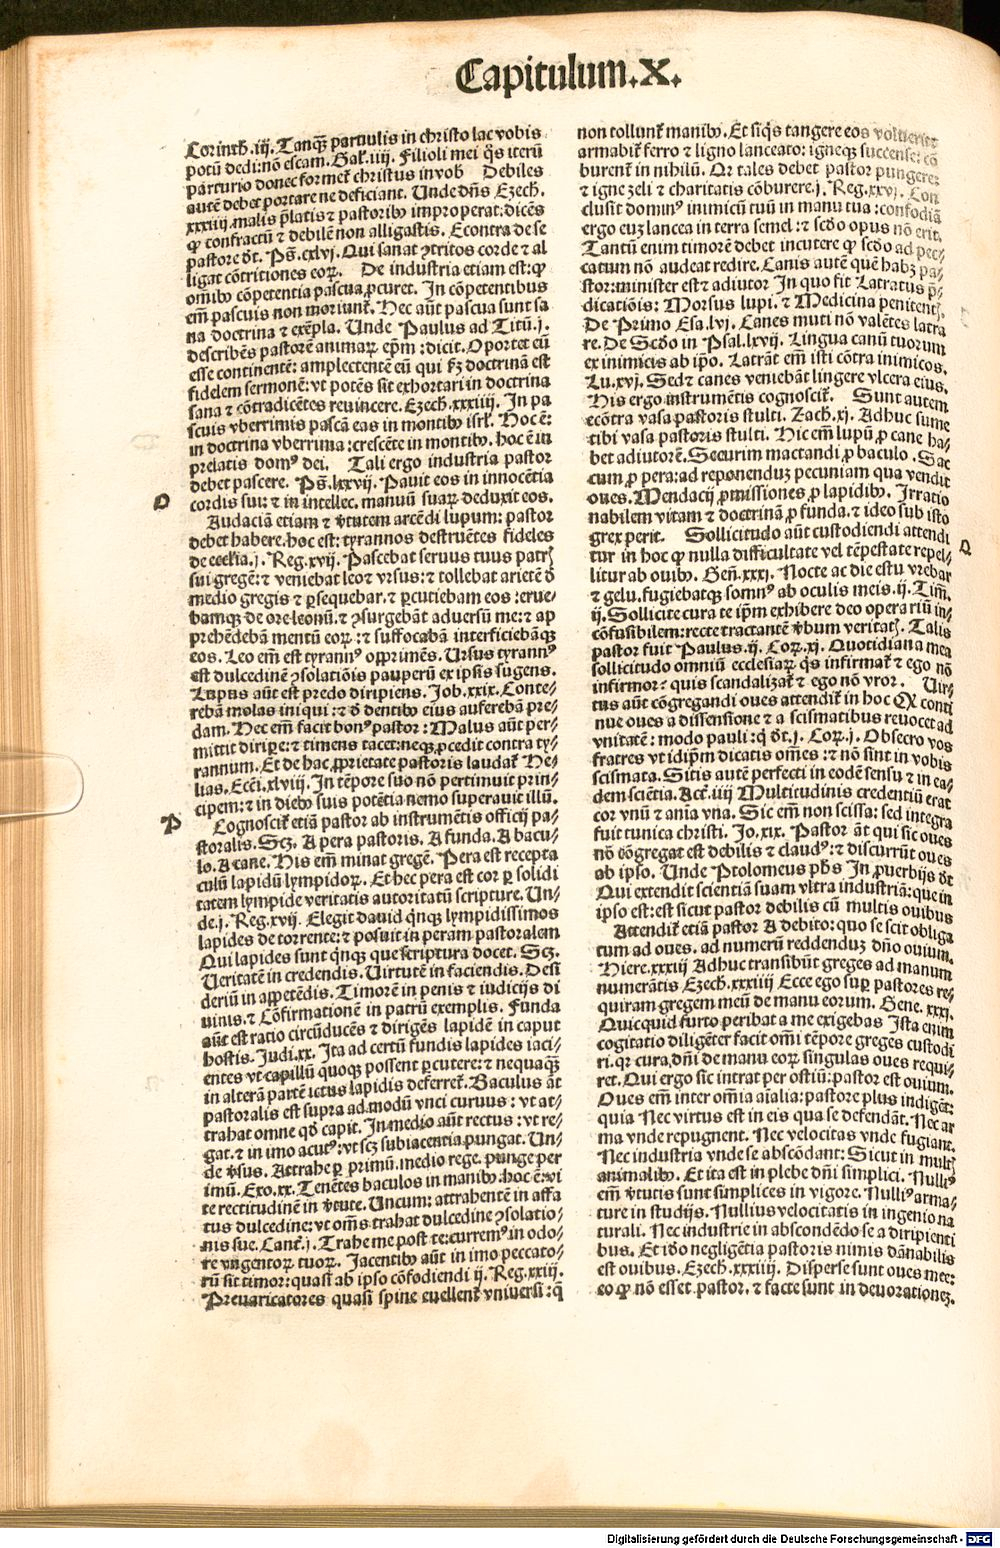 Capitulum.X.
Corinth.iij.Tanq̃ paruulis in christo lac vobis
potū dedi:nō escam.Gal̃.iiij. Filioli mei q̃s iterū
parturio donec formet̃ christus in vob̃ Debiles
autē debet portare ne deficiant. Unde dñs Ezech̃.
xxxiiij.malis p̃latis ⁊ pastoribꝰ improperat:dicēs
ꝙ confractū ⁊ debilē non alligastis. Econtra de se
pastore ðt. Ps̃.cxlvj.Qui sanat ꝯtritos corde ⁊ al
ligat cōtritiones eoꝝ. De industria etiam est:ꝙ
oībꝰ cōpetentia pascua ꝓcuret. In cōpetentibus
em̃ pascuis non moriunt̃. Hec aūt pascua sunt sa
na doctrina ⁊ exēpla. Unde Paulus ad Titū.j.
describēs pastorē animaꝝ ep̃m :dicit.Oportet eū
esse continentē: amplectentē eū qui ẜm doctrinā est
fidelem sermonē:vt potēs sit exhortari in doctrina
sana ⁊ cōtradicētes reuincere. Ezech̃.xxxiiij. In pa
scuis vberrimis pascā eas in montibꝰ isrl̃. Hoc ē:
in doctrina vberrima:crescēte in montibꝰ.hoc ē in
prelatis domꝰ dei. Tali ergo industria pastor
debet pascere. Ps̃.lxxvij. Pauit eos in innocētia
cordis sui: ⁊ in intellec.manuū suaꝝ deduxit eos.
O
Audaciā etiam ⁊ v̄tutem arcēdi lupum: pastor
debet habere.hoc est: tyrannos destruētes fideles
de eccľia.j. Reg.xvij. Pascebat seruus tuus patrꝭ
sui gregē: ⁊ veniebat leo⁊ vrsus: ⁊ tollebat arietē ð
medio gregis ⁊ ꝑsequebar. ⁊ ꝑcutiebam eos :erue/
bamqꝫ de ore leonū. ⁊ ꝯsurgebāt aduersū me: ⁊ ap
prehēdebā mentū eoꝝ :⁊ suffocabā interficiebāqꝫ
eos. Leo em̃ est tyrannꝰ opprimēs. Ursus tyrannꝰ
est dulcedinē ꝯsolatiōis pauperū ex ipsis sugens.
Lupus aūt est predo diripiens. Job.xxix.Conte/
rebā molas iniqui : ⁊ ð dentibꝰ eius auferebā pre/
dam. Hec em̃ facit bonꝰ pastor: Malus aūt per/
mittit diripe: ⁊ timens tacet:neqꝫ ꝓcedit contra ty/
rannum. Et de hac ꝓprietate pastoris laudat̃ He/
lias. Eccī.xlviij. In tēpore suo nō pertimuit prin/
cipem: ⁊ in diebꝰ suis potētia nemo superauit illū.
P
Cognoscit̃ etiā pastor ab instrumētis officij pa/
storalis. Scꝫ. A pera pastoris. A funda. A bacu/
lo. A cane. His em̃ minat gregē. Pera est recepta
culū lapidū lympidoꝝ. Et hec pera est cor ꝑ solidi
tatem lympide veritatis autoritatū scripture. Un/
de.j. Reg.xvij. Elegit dauid qīnqꝫ lympidissimos
lapides de torrente: ⁊ posuit in peram pastoralem
Qui lapides sunt qīnqꝫ que scriptura docet. Scꝫ.
Veritatē in credendis. Uirtutē in faciendis. Desi
deriū in appetēdis. Timorē in penis ⁊ iudicijs di
uinis. ⁊ Cōfirmationē in patrū exemplis. Funda
aūt est ratio circūducēs ⁊ dirigēs lapidē in caput
hostis. Judi.xx. Ita ad certū fundis lapides iaci/
entes vt capillū quoqꝫ possent ꝑcutere: ⁊ nequaꝗ̃
in alterā partē ictus lapidis deferret̃. Baculus āt
pastoralis est supra ad modū vnci curuus : vt at/
trahat omne qð capit. In medio aūt rectus : vt re/
gat. ⁊ in imo acutꝰ: vt scꝫ subiacentia pungat. Un/
de v̄sus. Attrahe ꝑ primū.medio rege. punge per
imū. Exo.xx. Tenētes baculos in manibꝰ.hoc ē:vi
te rectitudinē in v̄tute. Uncum: attrahentē in affa
tus dulcedine: vt om̄s trahat dulcedine ꝯsolatio/
nis sue. Cant̃.j. Trahe me post te:curremꝰ in odo/
re vngentoꝝ tuoꝝ. Jacentibꝰ aūt in imo peccato/
rū sit timor: quasi ab ipso cōfodiendi ij. Reg.xxiij.
Preuaricatores quasi spine euellent̃ vniuersi :q̃
non tollunt̃ manibꝰ. Et siq̃s tangere eos voluerit
armabit̃ ferro ⁊ ligno lanceato: igneqꝫ succense: cō
burent̃ in nihilū. Qr tales debet pastor pungere:
⁊ igne zeli ⁊ charitatis cōburere.j. Reg.xxvj. Con
clusit dominꝰ inimicū tuū in manu tua :confodiā
ergo euꝫ lancea in terra semel : ⁊ scðo opus nō erit.
Tantū enim timorē debet incutere ꝙ scðo ad pec/
catum nō audeat redire. Canis autē quē habꝫ pa/
stor:minister est⁊ adiutor In quo fit Latratus p̃/
dicatiōis: Morsus lupi. ⁊ Medicina penitentꝭ.
De Primo Esa.lvj. Canes muti nō valētes latra
re. De Scðo in Psal.lxvij. Lingua canū tuorum
ex inimicis ab ip̄o. Latrāt em̃ isti cōtra inimicos.
Lu.xvj. Sed⁊ canes veniebāt lingere vlcera eius.
His ergo instrumētis cognoscit̃. Sunt autem
ecōtra vasa pastoris stulti. Zach.xj. Adhuc sume
tibi vasa pastoris stulti. Hic em̃ lupū ꝓ cane ha/
bet adiutorē. Securim mactandi ꝓ baculo. Sac
cum ꝓ pera: ad reponenduꝫ pecuniam qua vendit
oues. Mendacij ꝓmissiones ꝓ lapidibꝰ. Irratio
nabilem vitam ⁊ doctrinā ꝓ funda. ⁊ ideo sub isto
grex perit. Sollicitudo aūt custodiendi attendi
Q
tur in hoc ꝙ nulla difficultate vel tēpestate repel/
litur ab ouibꝰ. Geñ.xxxj. Nocte ac die estu vrebar
⁊ gelu.fugiebatqꝫ somnꝰ ab oculis meis.ij. Tim̃.
ij. Sollicite cura te ip̄m exhibere deo opera riū in/
cōfusibilem:recte tractantē v̄bum veritatꝭ. Talis
pastor fuit Paulus.ij. Coꝝ.xj. Quotidiana mea
sollicitudo omniū ecclesiaꝝ q̃s infirmat̃ ⁊ ego nō
infirmor: quis scandalizat̃ ⁊ ego nō vror. Uir/
tus aūt cōgregandi oues attendit̃ in hoc Qꝫ conti
nue oues a dissensione ⁊ a scismatibus reuocet ad
vnitatē : modo pauli :q̃ ðt.j. Coꝝ.j. Obsecro vos
fratres vt idip̄m dicatis om̄es : ⁊ nō sint in vobis
scismata. Sitis autē perfecti in eodē sensu ⁊ in ea/
dem sciētia. Act̃.iiij Multitudinis credentiū erat
cor vnū ⁊ anīa vna. Sic em̃ non scissa: sed integra
fuit tunica christi. Jo.xix. Pastor āt qui sic oues
nō cōgregat est debilis ⁊ claudꝰ: ⁊ discurrūt oues
ab ipso. Unde Ptolomeus ph̄s In ꝓuerbijs ðt
Qui extendit scientiā suam vltra industriā: que in
ipso est: est sicut pastor debilis cū multis ouibus
Attendit̃ etiā pastor A debito: quo se scit obliga
tum ad oues. ad numerū reddenduꝫ dn̄o ouium.
Hiere.xxxiij Adhuc transibūt greges ad manum
numerātis Ezech̃.xxxiiij Ecce ego suꝑ pastores re/
quiram gregem meū de manu eorum. Gene. xxxj.
Quicquid furto peribat a me exigebas Ista enim
cogitatio diligēter facit om̄i tēpore greges custodi
ri.qr cura dn̄i de manu eoꝝ singulas oues requi/
ret. Qui ergo sic intrat per ostiū: pastor est ouium.
Oues em̃ inter om̄ia aīalia: pastore plus indigēt:
quia Nec virtus est in eis qua se defendāt. Nec ar
ma vnde repugnent. Nec velocitas vnde fugiant.
Nec industria vnde se abscōdant: Sicut in multꝭ
animalibꝰ. Et ita est in plebe dn̄i simplici. Nullꝰ
em̃ v̄tutis sunt simplices in vigore. Nullꝰ arma/
ture in studijs. Nullius velocitatis in ingenio na
turali. Nec industrie in abscondēdo se a diripienti
bus. Et idō negligētia pastoris nimis dānabilis
est ouibus. Ezech̃.xxxiiij. Disperse sunt oues mee:
eo ꝙ nō esset pastor. ⁊ facte sunt in deuorationeꝫ.
Digitalisierung gefördert durch die Deutsche Forschungsgemeinschaft - DFG